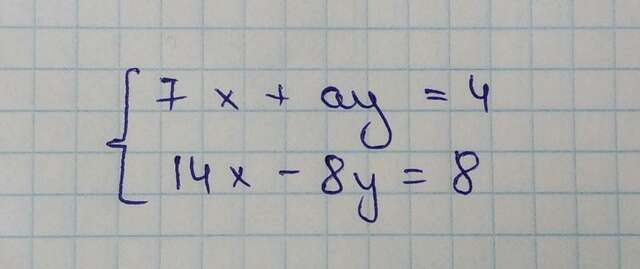 7x + ay = 4
14x - 8y = 8